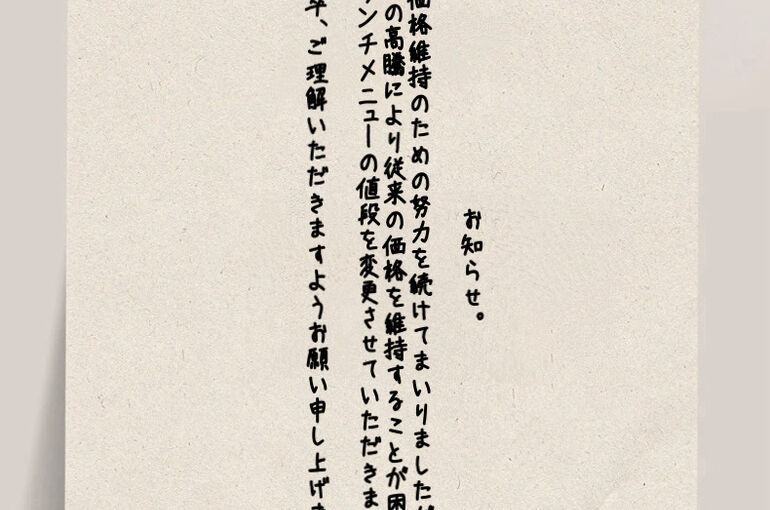 お知らせ。
価格維持のための努力を続けてまいりましたが
の高騰により従来の価格を維持することが困
ンチメニューの値段を変更させていただきま
卒、ご理解いただきますようお願い申し上げ